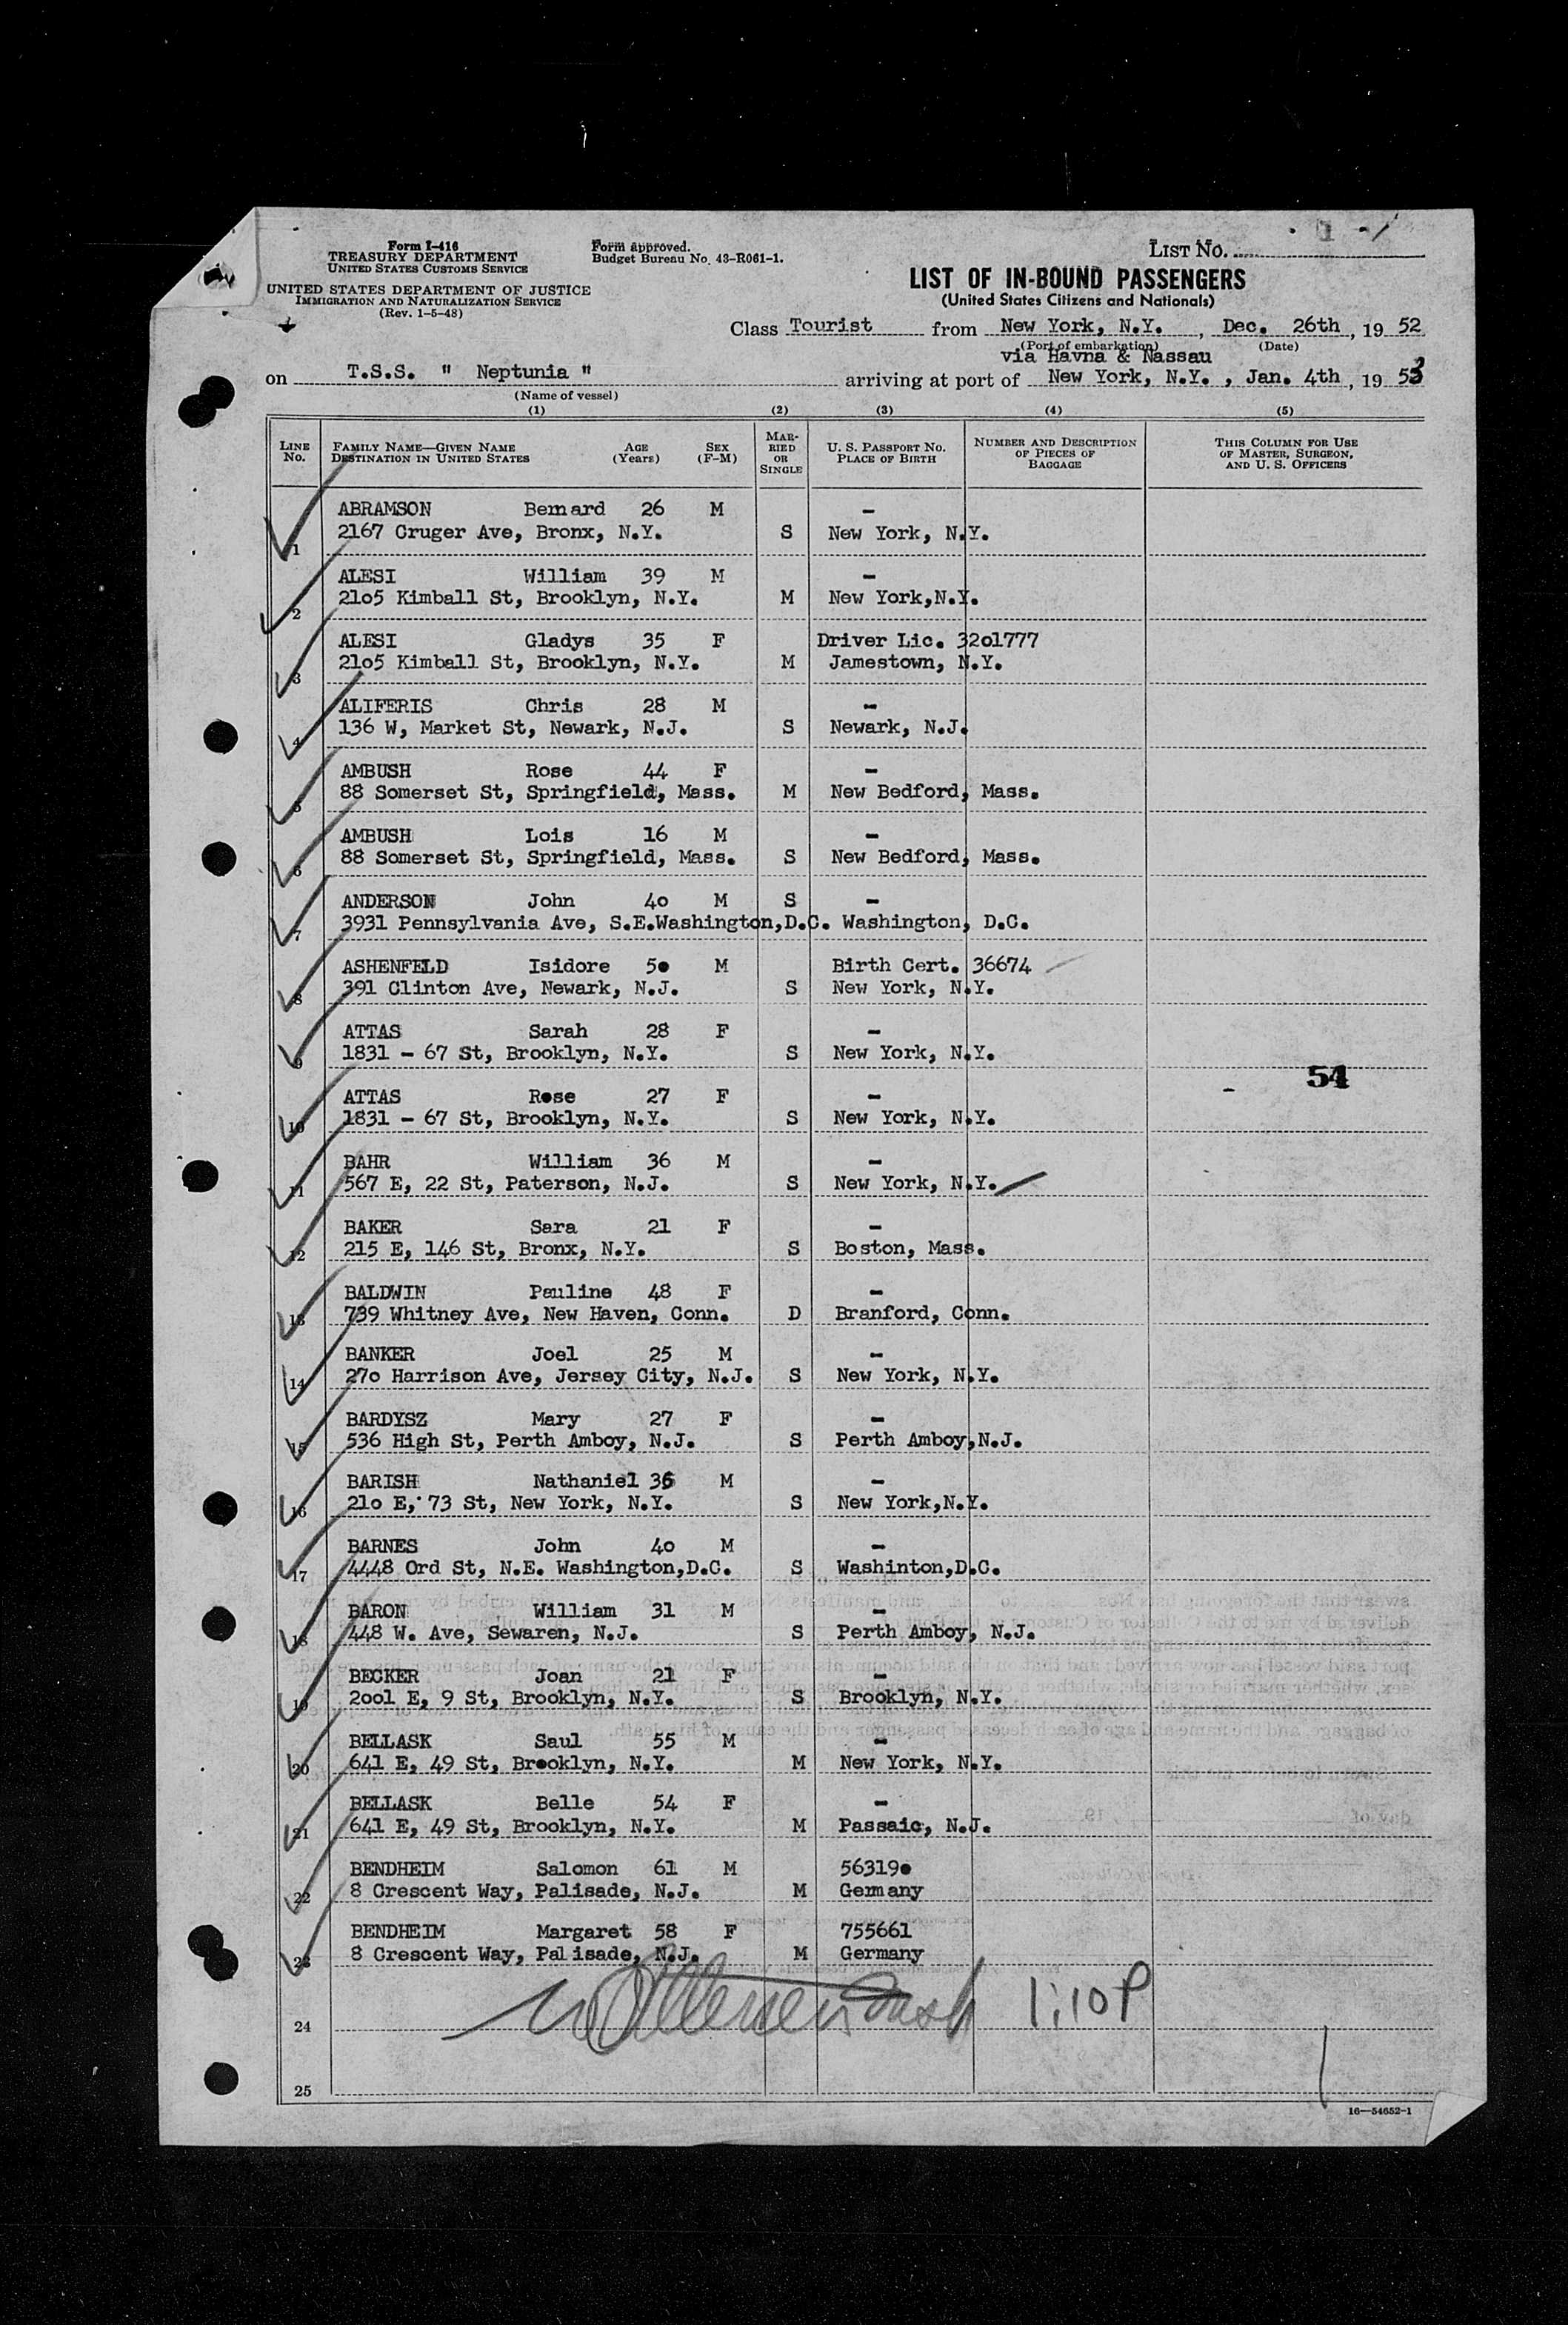 Form I-416
TREASURY DEPARTMENT
UNITED STATES CUSTOMS SERVICE
UNITED STATES DEPARTMENT OF JUSTICE
IMMIGRATION AND NATURALIZATION SERVICE
(Rev. 1-5-48)
Form approved.
Budget Bureau No. 43-R061-1.
LIST No. 1
LIST OF IN-BOUND PASSENGERS
(United States Citizens and Nationals)
Class Tourist from New York, N.Y. , Dec. 26th , 19 52
(Port of embarkation) (Date)
via Havna & Nassau
on T.S.S. " Neptunia " arriving at port of New York, N.Y. , Jan. 4th , 19 53
(Name of vessel)
(1) (2) (3) (4) (5)
LINE No. FAMILY NAME—GIVEN NAME DESTINATION IN UNITED STATES AGE (Years) SEX (F-M) MARRIED OR SINGLE U. S. PASSPORT NO. PLACE OF BIRTH NUMBER AND DESCRIPTION OF PIECES OF BAGGAGE THIS COLUMN FOR USE OF MASTER, SURGEON, AND U. S. OFFICERS
ABRAMSON Bernard 26 M -
1 2167 Cruger Ave, Bronx, N.Y. S New York, N.Y.
ALESI William 39 M -
2 21o5 Kimball St, Brooklyn, N.Y. M New York,N.Y.
ALESI Gladys 35 F Driver Lic. 32o1777
3 21o5 Kimball St, Brooklyn, N.Y. M Jamestown, N.Y.
ALIFERIS Chris 28 M -
4 136 W, Market St, Newark, N.J. S Newark, N.J.
AMBUSH Rose 44 F -
5 88 Somerset St, Springfield, Mass. M New Bedford, Mass.
AMBUSH Lois 16 M -
6 88 Somerset St, Springfield, Mass. S New Bedford, Mass.
ANDERSON John 4o M S -
7 3931 Pennsylvania Ave, S.E.Washington,D.C. Washington, D.C.
ASHENFELD Isidore 5o M Birth Cert. 36674
8 391 Clinton Ave, Newark, N.J. S New York, N.Y.
ATTAS Sarah 28 F -
9 1831 - 67 St, Brooklyn, N.Y. S New York, N.Y.
54
ATTAS Rose 27 F -
10 1831 - 67 St, Brooklyn, N.Y. S New York, N.Y.
BAHR William 36 M -
11 567 E, 22 St, Paterson, N.J. S New York, N.Y.
BAKER Sara 21 F -
12 215 E, 146 St, Bronx, N.Y. S Boston, Mass.
BALDWIN Pauline 48 F -
13 739 Whitney Ave, New Haven, Conn. D Branford, Conn.
BANKER Joel 25 M -
14 27o Harrison Ave, Jersey City, N.J. S New York, N.Y.
BARDYSZ Mary 27 F -
15 536 High St, Perth Amboy, N.J. S Perth Amboy,N.J.
BARISH Nathaniel 36 M -
16 21o E, 73 St, New York, N.Y. S New York,N.Y.
BARNES John 4o M -
17 4448 Ord St, N.E. Washington,D.C. S Washinton,D.C.
BARON William 31 M -
18 448 W. Ave, Sewaren, N.J. S Perth Amboy, N.J.
BECKER Joan 21 F -
19 2ool E, 9 St, Brooklyn, N.Y. S Brooklyn, N.Y.
BELLASK Saul 55 M -
20 641 E, 49 St, Brooklyn, N.Y. M New York, N.Y.
BELLASK Belle 54 F -
21 641 E, 49 St, Brooklyn, N.Y. M Passaic, N.J.
BENDHEIM Salomon 61 M 56319o
22 8 Crescent Way, Palisade, N.J. M Germany
BENDHEIM Margaret 58 F 755661
23 8 Crescent Way, Palisade, N.J. M Germany
1:10P
24
25
16—54652-1